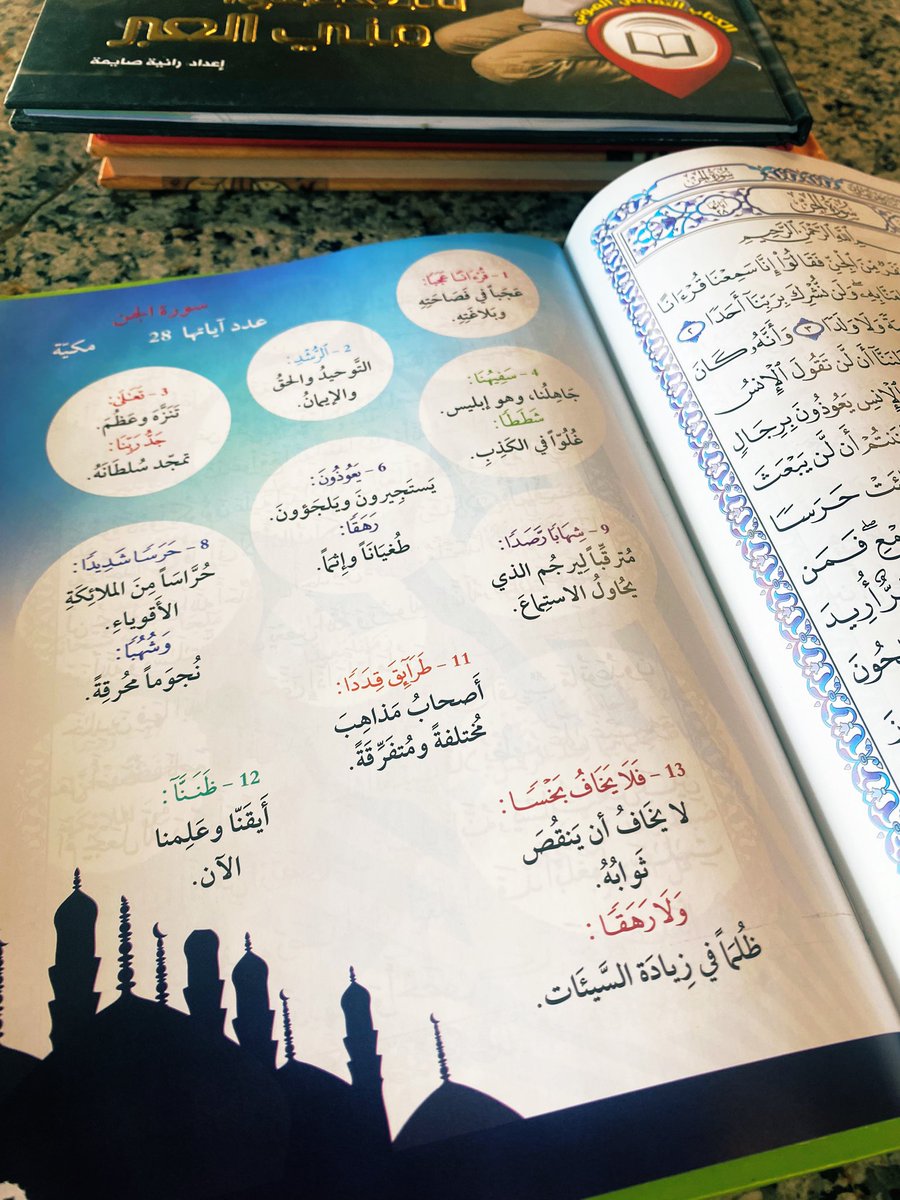 مني العبر
إعداد. رانية صايمة
الكتاب التفاعلي المرئي
سورة الجن
عدد آياتها 28 مكيّة
1 - قُرْءَانًا عَجَبًا:
عَجَباً في فَصَاحَتِهِ
وبَلاغَتِهِ.
2 - الرُّشْدِ:
التَّوحيدُ والحقُّ
والإيمانُ.
3 - تَعَٰلَىٰ:
تَنَزَّهَ وعَظُمَ.
جَدُّ رَبِّنَا:
تمجّد سُلطَانَهُ.
4 - سَفِيهُنَا:
جَاهِلُنا، وهو إبليس.
شَطَطًا:
غُلُوّاً في الكَذِبِ.
6 - يَعُوذُونَ:
يَستَجِيرونَ ويَلجَؤونَ.
رَهَقًا:
طُغيَاناً وإثماً.
8 - حَرَسًا شَدِيدًا:
حُرَّاساً مِنَ الملائكَةِ
الأَقوياءِ.
وَشُهُبًا:
نُجوَماً محُرِقةً.
9 - شِهَابًا رَّصَدًا:
مُترقِّباً ليرجُم الذي
يحُاولُ الاستِماعَ.
11 - طَرَآئِقَ قِدَدًا:
أَصحابُ مَذاهِبَ
مُختلفةً ومُتفَرِّقَةً.
12 - ظَنَنَّآ:
أَيقَنّا وعَلِمنا
الآن.
13 - فَلَا يَخَافُ بَخْسًا:
لا يخَافُ أن يَنقُصَ
ثَوابُهُ.
وَلَا رَهَقًا:
ظُلمَاً في زِيادَة السَّيئَات.
سُورَةُ الجِنِّ
سُورَةُ الجِنِّ
اللَّهِ الرَّحْمَٰنِ الرَّحِيمِ
مِّنَ ٱلْجِنِّ فَقَالُوٓا۟ إِنَّا سَمِعْنَا قُرْءَانًا
وَلَن نُّشْرِكَ بِرَبِّنَآ أَحَدًا ٢
وَلَا وَلَدًا ٣ وَأَنَّهُۥ كَانَ
أَن لَّن تَقُولَ ٱلْإِنسُ
ٱلْإِنسِ يَعُوذُونَ بِرِجَالٍ
أَن لَّن يَبْعَثَ
حَرَسًا
فَمَن
أُرِيدَ